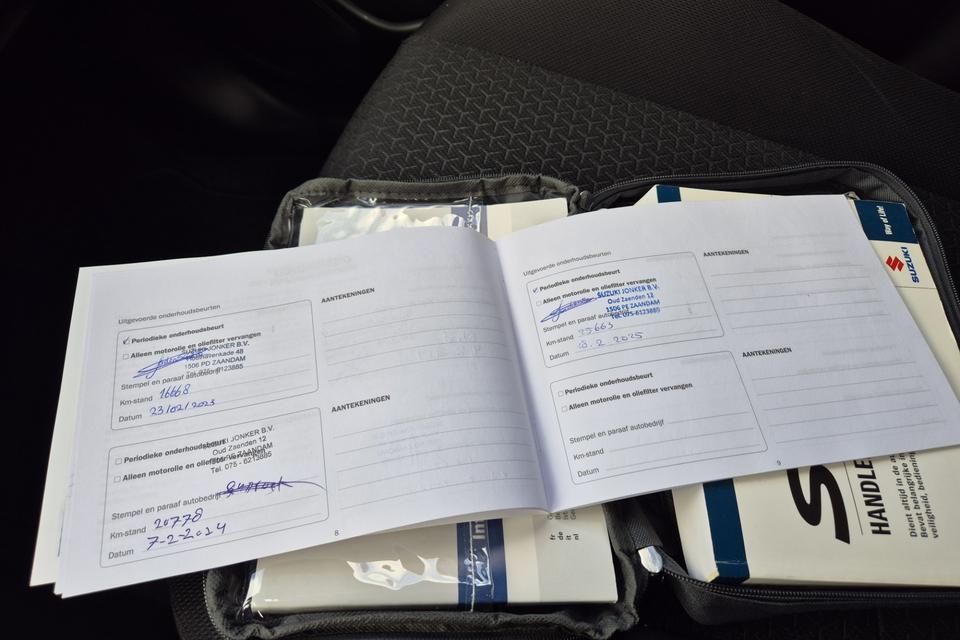 Uitgevoerde onderhoudsbeurten
AANTEKENINGEN
✓ Periodieke onderhoudsbeurt
□ Alleen motorolie en oliefilter vervangen
SUZUKI JONKER B.V.
48
1506 PD ZAANDAM
Stempel en paraaf autobedrijf
Km-stand 16668
Datum 23/02/2023
AANTEKENINGEN
□ Periodieke onderhoudsbeurt
□ Alleen motorolie en oliefilter vervangen
SUZUKI JONKER B.V.
Oud Zaenden 12
1506 PE ZAANDAM
Tel. 075 - 6123885
Stempel en paraaf autobedrijf
Km-stand 20778
Datum 7-2-2024
8
Uitgevoerde onderhoudsbeurten
AANTEKENINGEN
✓ Periodieke onderhoudsbeurt
□ Alleen motorolie en oliefilter vervangen
SUZUKI JONKER B.V.
Oud Zaenden 12
1506 PE ZAANDAM
Tel. 075-6123885
Stempel en paraaf autobedrijf
Km-stand 25663
Datum 2.2025
AANTEKENINGEN
□ Periodieke onderhoudsbeurt
□ Alleen motorolie en oliefilter vervangen
Stempel en paraaf autobedrijf
Km-stand
Datum
9
Way of Life!
SUZUKI
HANDLE
Dient altijd in de
belangrijke
veiligheid, bediening
fr
de
it
nl